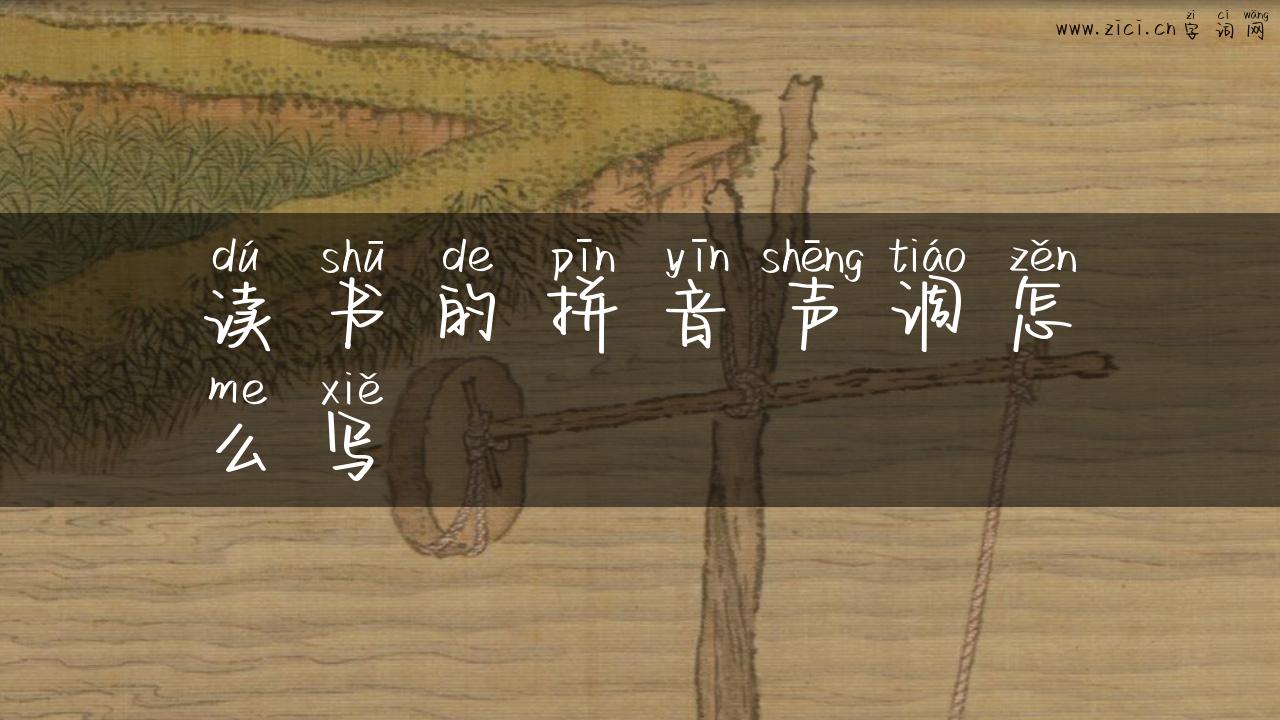 zì cí wǎng
www.zici.cn 字 词 网
dú shū de pīn yīn shēng tiáo zěn
读 书 的 拼 音 声 调 怎
me xiě
么 写